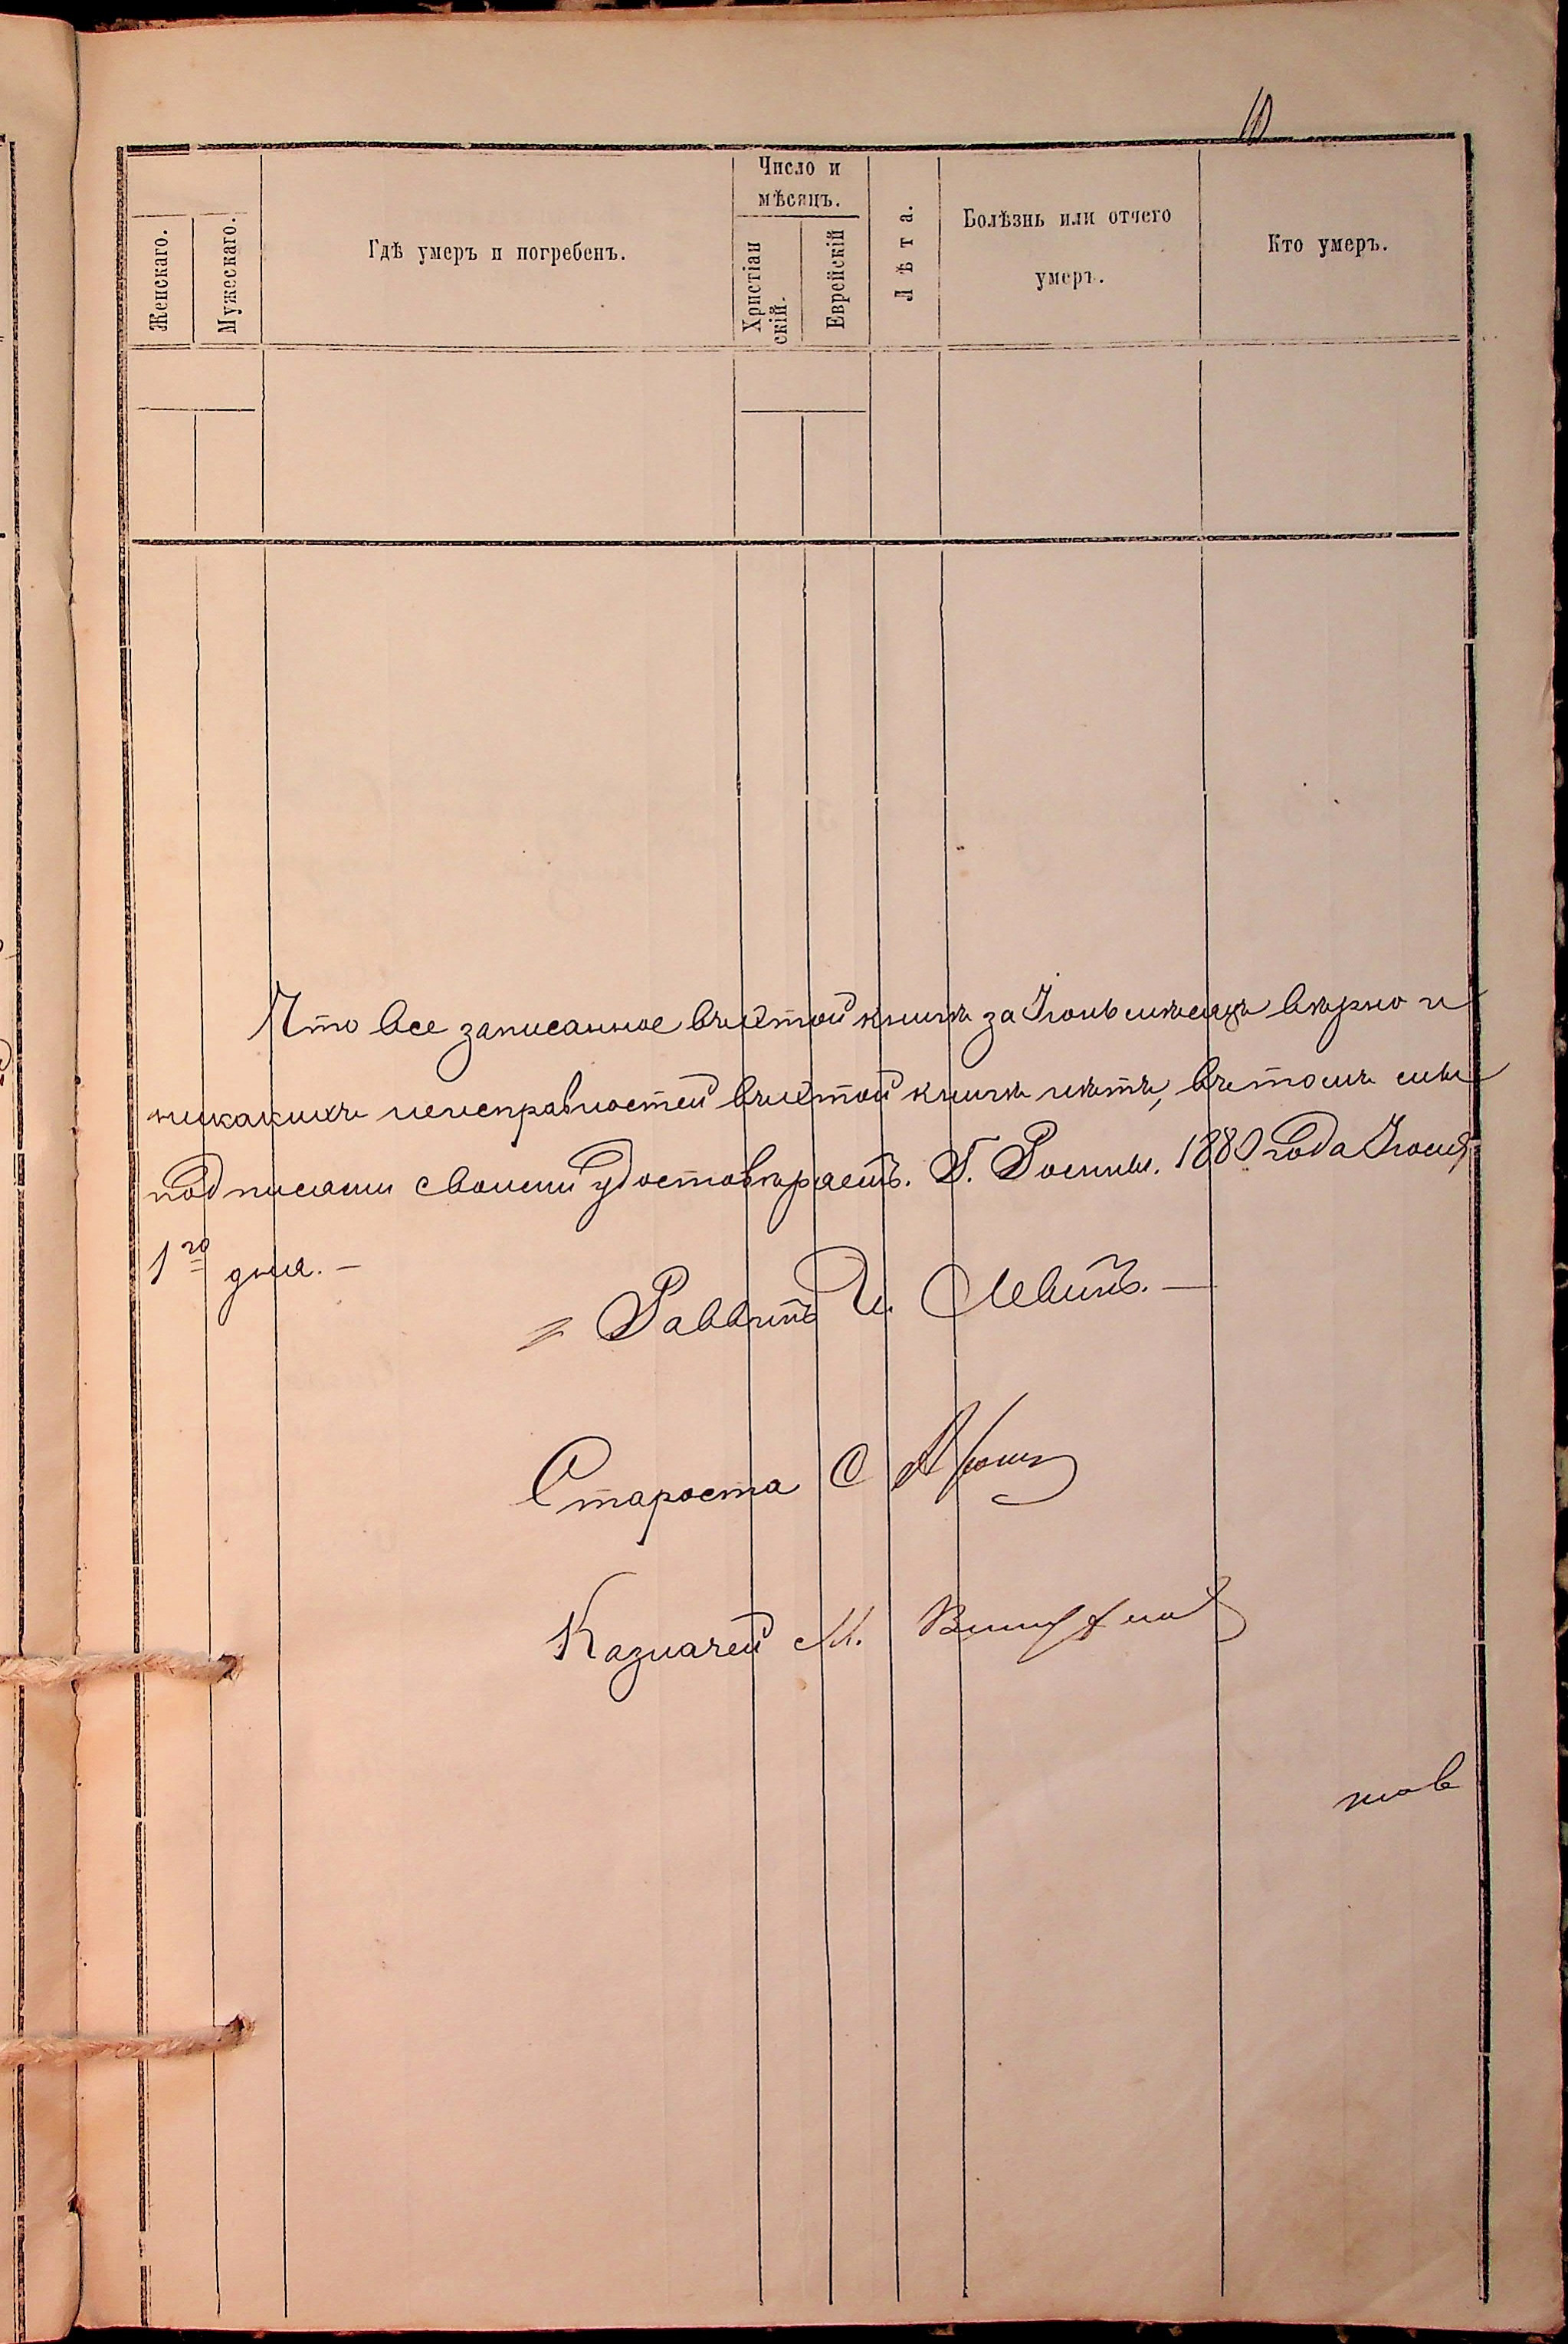 10
Число и
мѣсяцъ.
Женскаго.
Мужескаго.
Гдѣ умеръ и погребенъ.
Христіан
скій.
Еврейскій
Лѣта.
Болѣзнь или отчего
умеръ.
Кто умеръ.
Что все записанное въ этой книгѣ за Іюнь мѣсяцъ вѣрно и
никакихъ неисправностей въ этой книгѣ нѣтъ, въ томъ мы
подписами своими удостовѣряемъ. Г. Россіены. 1880 года Іюля
1го дня.—
Раввинъ И. Левинъ.—
Староста С
Казначей М.